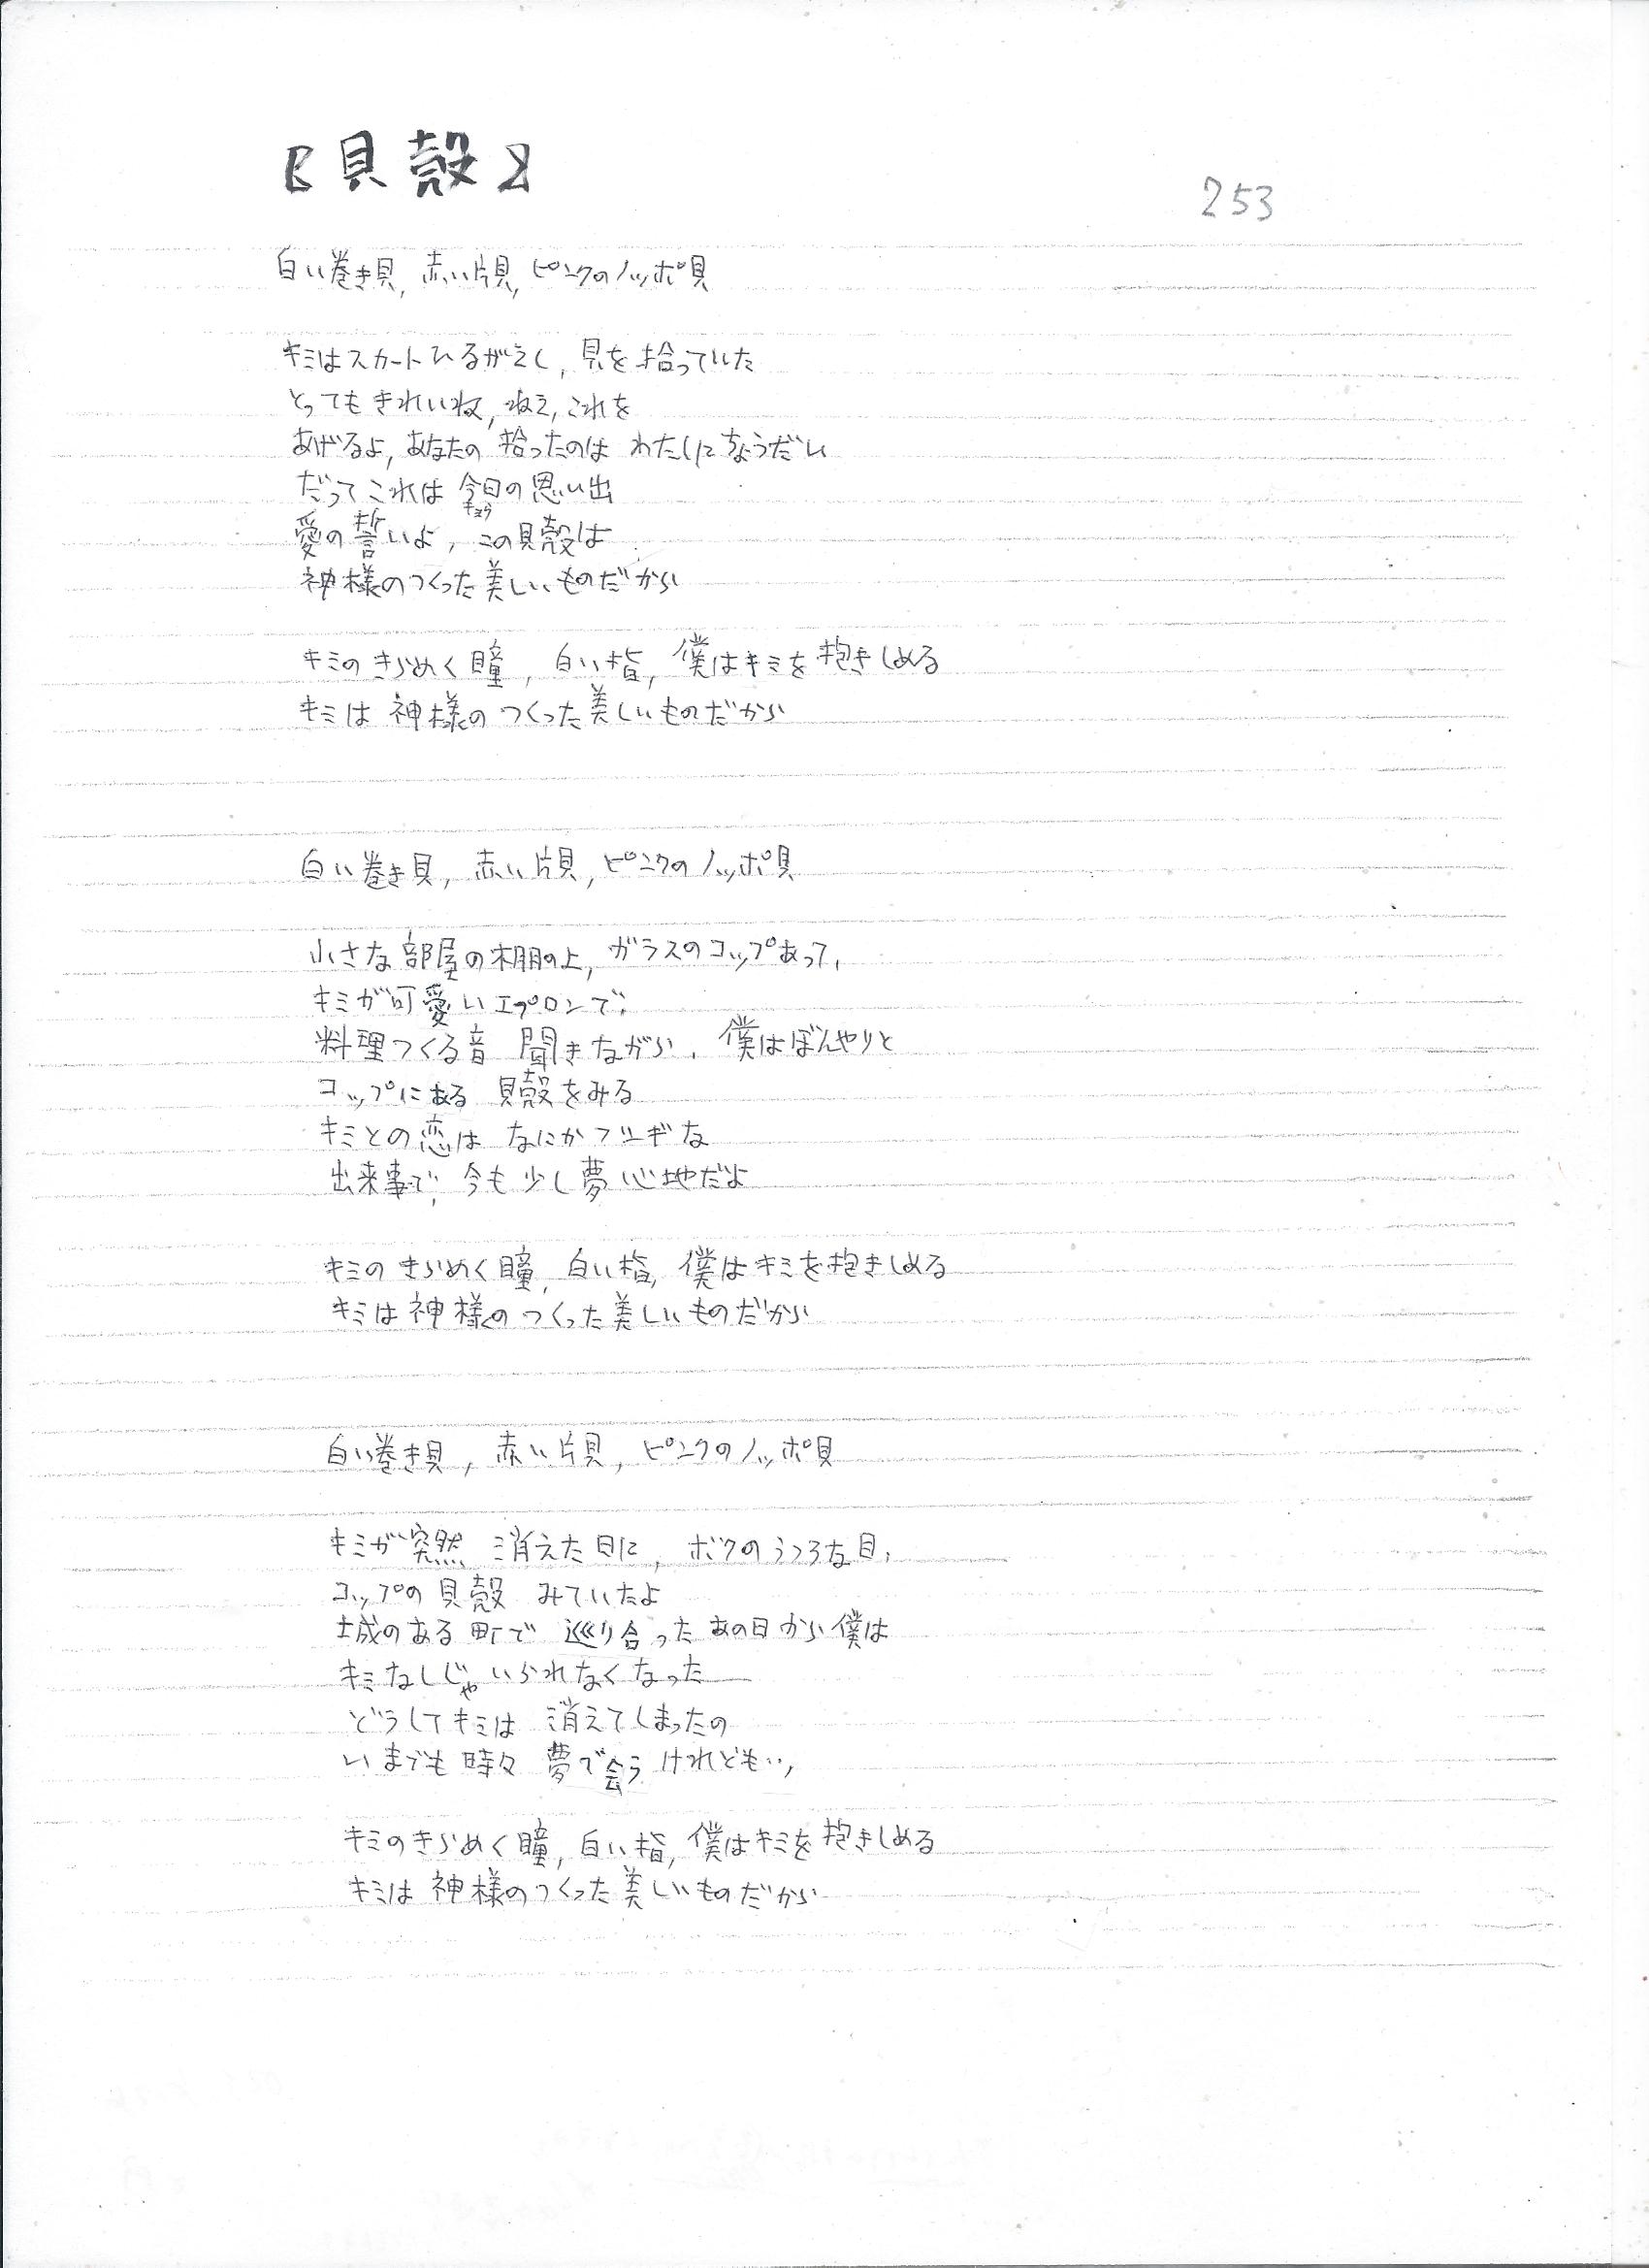 【貝殻】
253
白い巻き貝, 赤い片貝, ピンクのノッポ貝
キミはスカートひるがえし, 貝を拾っていた
とってもきれいね, ねえ, これを
あげるよ, あなたの 拾ったのは わたしにちょうだい
だってこれは 今日の思い出
きょう
愛の誓いよ, この貝殻は
神様のつくった美しいものだから
キミの きらめく瞳, 白い指, 僕はキミを抱きしめる
キミは 神様の つくった美しいものだから
白い巻き貝, 赤い片貝, ピンクのノッポ貝
小さな部屋の棚の上, ガラスのコップあって,
キミが可愛いエプロンで,
料理つくる音 聞きながら, 僕はぼんやりと
コップにある 貝殻をみる
キミとの恋は なにかフシギな
出来事で, 今も少し夢心地だよ
キミの きらめく瞳, 白い指, 僕はキミを抱きしめる
キミは神様の つくった美しいものだから
白い巻き貝, 赤い片貝, ピンクのノッポ貝
キミが突然 消えた日に, ボクのうつろな目,
コップの貝殻 みていたよ
城のある町で 巡り合ったあの日から僕は
キミなしじゃいられなくなった
どうしてキミは 消えてしまったの
いまでも時々 夢で会うけれども…,
キミのきらめく瞳, 白い指, 僕はキミを抱きしめる
キミは 神様のつくった美しいものだから